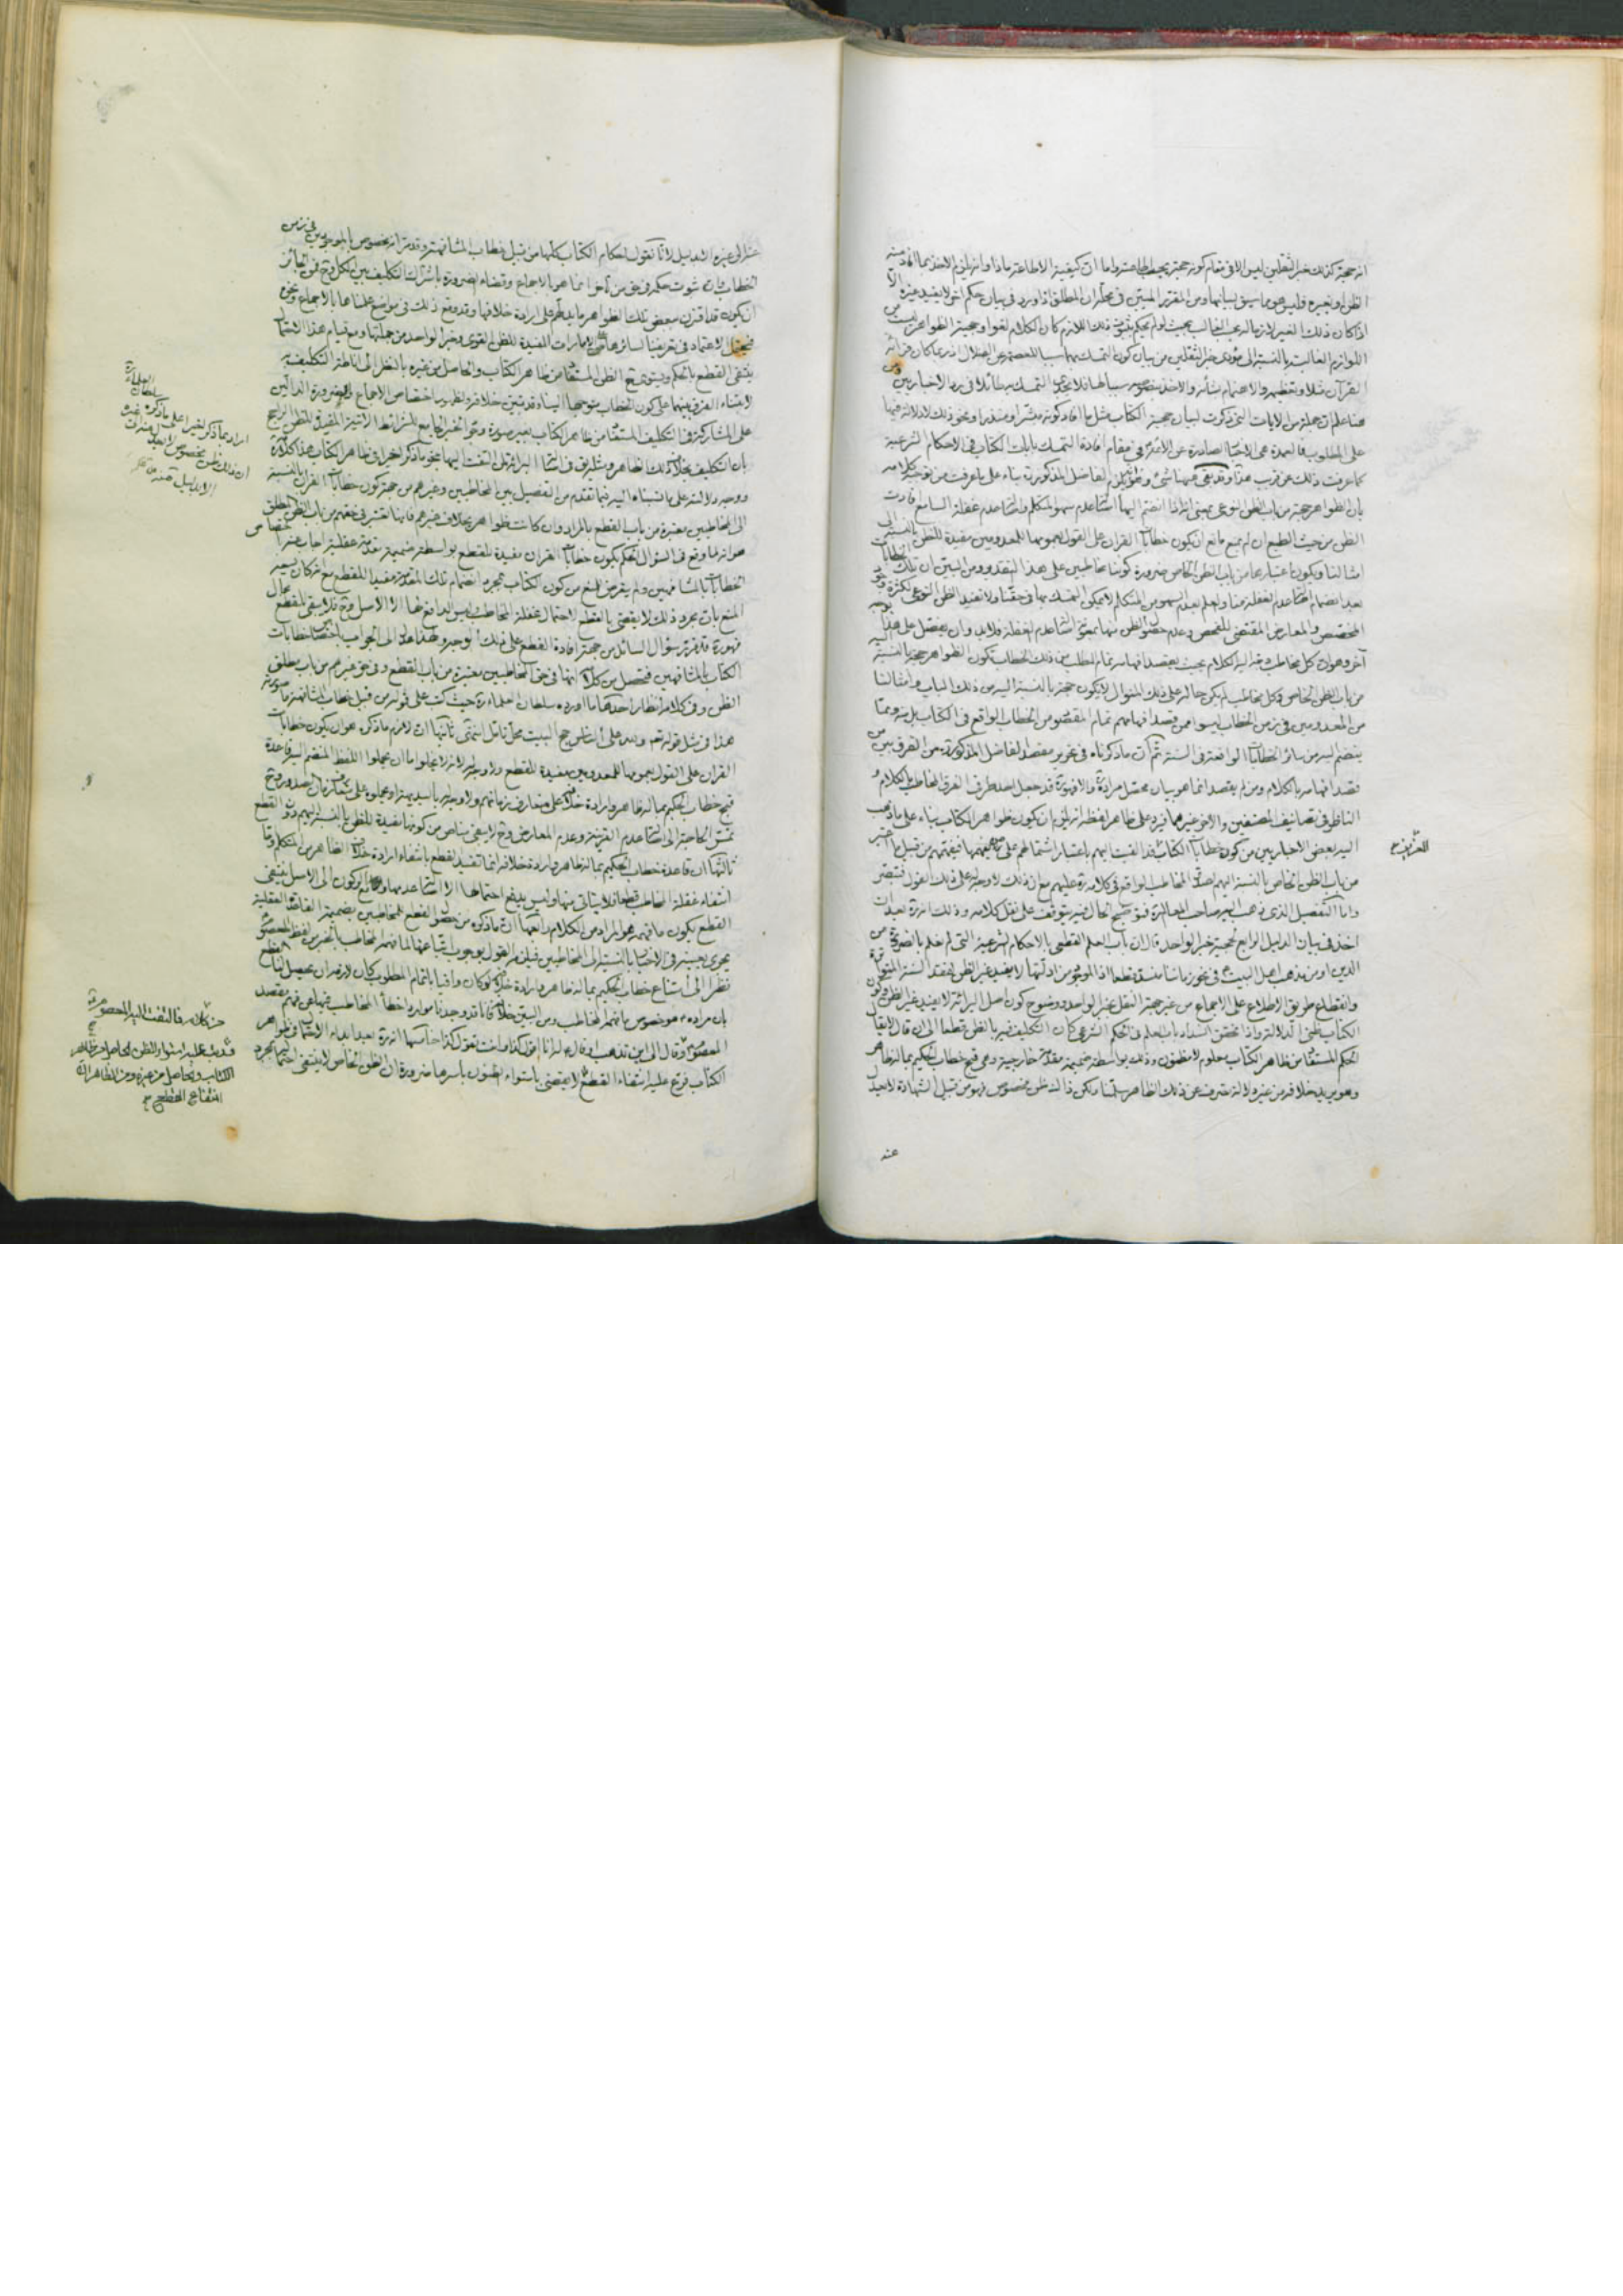 انه حجة كذلك خبر الثقلين ليس الا في مقام كونه حجة يجب اطاعته واما ان كيفية الاطاعة ماذا وانه يلزم الاخذ بما افاد منه
الظن او بغيره فليس هو مما سيق ببيانها ومن المقرر المبين في محله ان المطلق اذا ورد في بيان حكم اخر لا يفيد غيره الا
اذا كان ذلك الغير لازما له بحسب الغالب بحيث لو لم يحكم بثبوت ذلك اللازم كان الكلام لغوا وحجية الظواهر ليست من
اللوازم الغالبة بالنسبة الى مؤدى خبر الثقلين من بيان كون التمسك بهما سببا للعصمة عن الضلال اذ ربما كان قرائة
القرآن مثلا وتعظيمه والاهتمام بشأنه والاخذ بنصوصه سببا لها فلا يجدي التمسك به طائلا في رد الاخباريين ومن
هنا علم ان جملة من الايات التي ذكرت لبيان حجية الكتاب مثل ما افاد كونه مبشرا ومنذرا ونحو ذلك لا دلالة فيها
على المطلوب فالعمدة هي الاخبار الصادرة عن الائمة في مقام افادة التمسك بايات الكتاب في الاحكام الشرعية
كما عرفت ذلك عن قريب هذا وقد بقي هنا شيء وهو انه يلزم الفاضل المذكور بناء على ما عرفت من توجيه كلامه
بان الظواهر حجة من باب الظن النوعي بمعنى انه اذا انضم اليها اصالة عدم سهو المتكلم واصالة عدم غفلة السامع افادت
الظن من حيث الطبع ان لم يمنع مانع ان يكون خطابات القران على القول بعمومها للمعدومين مفيدة للظن بالنسبة الى
امثالنا ويكون اعتبارها من باب الظن الخاص ضرورة كوننا مخاطبين على هذا التقدير ومن البين ان تلك الخطابات
بعد انضمام اصالة عدم الغفلة منا والعلم بعدم السهو من المتكلم لا يمكن التمسك بها في حقنا ولا تفيد الظن النوعي لكثرة وجود
المخصص والمعارض المقتضي للفحص وعدم حصول الظن منها بمعونة اصالة عدم الغفلة فلا بد وان يفصل على هذا بوجه
آخر وهو ان كل مخاطب وجه اليه الكلام بحيث يقصد افهامه تمام المطلب من ذلك الخطاب تكون الظواهر حجة بالنسبة اليه
من باب الظن الخاص وكل مخاطب لم يكن حاله على ذلك المنوال لا يكون حجة بالنسبة اليه من ذلك الباب وامثالنا
من المعدومين في زمن الخطاب ليسوا ممن قصد افهامهم تمام المقصود من الخطاب الواقع في الكتاب بل منه ومما
ينضم اليه من سائر الخطابات الواقعة في السنة ثم ان ما ذكرناه في تحرير مقصد الفاضل المذكور من الفرق بين من
قصد افهامه بالكلام ومن لم يقصد انما هو بيان محصل مراده والا فهو قد جعل احد طرفي الفرق المخاطب بالكلام و
الناظر في تصانيف المصنفين والاخر غيرهما فيرد على ظاهر لفظه انه يلزم ان يكون ظواهر الكتاب بناء على ما ذهب
اليه بعض الاخباريين من كون خطابات الكتاب قد القيت اليهم باعتبار اشتمالهم على من يفهمها فيفهمهم من قبيل ما اعتبر
من باب الظن الخاص بالنسبة اليهم لصدق المخاطب الواقع في كلامه عليهم مع ان ذلك لا وجه له على ذلك القول فتبصر
واما التفصيل الذي ذهب اليه صاحب المعالم فتوضيح الحال فيه يتوقف على نقل كلامه وذلك انه ره بعد ان
اخذ في بيان الدليل الرابع لحجية خبر الواحد قال ان باب العلم القطعي بالاحكام الشرعية التي لم تعلم بالضرورة من
الدين او من مذهب اهل البيت في نحو زماننا منسد قطعا اذ الموجود من ادلتها لا يفيد غير الظن لفقد السنة المتواترة
وانقطاع طريق الاطلاع على الاجماع من غير جهة النقل بخبر الواحد ووضوح كون اصل البرائة لا يفيد غير الظن وكون
الكتاب ظني الدلالة واذا تحقق انسداد باب العلم في الحكم الشرعي كان التكليف فيه بالظن قطعا الى ان قال لا يقال
الحكم المستفاد من ظاهر الكتاب معلوم لا مظنون وذلك بواسطة ضميمة مقدمة خارجية وهي قبح خطاب الحكيم بما له ظاهر
وهو يريد خلافه من غير دلالة تصرف عن ذلك الظاهر سلمنا ولكن ذلك ظن مخصوص فهو من قبيل الشهادة لا يعدل
عنه
عنه الى غيره الا بدليل لانا نقول احكام الكتاب كلها من قبيل خطاب المشافهة وقد مر انه مخصوص بالموجودين في زمن
الخطاب وان ثبوت حكمه في حق من تأخر انما هو بالاجماع وقضاء الضرورة باشتراك التكليف بين الكل وح فمن الجائز
ان يكون قد اقترن ببعض تلك الظواهر ما يدلهم على ارادة خلافها وقد وقع ذلك في مواضع علمناها بالاجماع ونحوه
فيحتمل الاعتماد في تعريفنا لسائرها على الامارات المفيدة للظن القوي وخبر الواحد من جملتها ومع قيام هذا الاحتمال
ينتفي القطع بالحكم ويستوي ح الظن المستفاد من ظاهر الكتاب والحاصل من غيره بالنظر الى اناطة التكليف به
لابتناء الفرق بينهما على كون الخطاب متوجها الينا وقد تبين خلافه ولظهور اختصاص الاجماع والضرورة الدالين
على المشاركة في التكليف المستفاد من ظاهر الكتاب بغير صورة وجود الخبر الجامع للشرائط الاتية المفيد للظن الراجح
بان التكليف بخلاف ذلك الظاهر ومثله يق في اصالة البرائة لمن التفت اليها بنحو ما ذكر اخيرا في ظاهر الكتاب هذا كلامه
ووجه دلالته على ما نسبناه اليه فيما تقدم من التفصيل بين المخاطبين وغيرهم من جهة كون خطابات القران بالنسبة
الى المخاطبين معتبرة من باب القطع بالمراد وان كانت ظواهر بخلاف غيرهم فانها تعتبر في حقهم من باب الظن المطلق
هو انه لما وقع في السؤال الحكم بكون خطابات القران مفيدة للقطع بواسطة ضميمة مقدمة عقلية اجاب عنه باختصاص
الخطابات بالمشافهين ولم يتعرض للمنع من كون الكتاب بمجرد انضمام تلك المقدمة مفيدا للقطع مع انه كان يسعه
المنع بان مجرد ذلك لا يقتضي بالقطع لاحتمال غفلة المخاطب وليس الدافع لها الا الاصل وح فلا يبقى للقطع مجال
فهو ره قد قرر سؤال السائل من جهة افادة القطع على ذلك الوجه ولهذا عدل الى الجواب باختصاص خطابات
الكتاب بالمشافهين فتحصل من كلامه انها في حق المخاطبين معتبرة من باب القطع وفي حق غيرهم من باب مطلق
الظن وفي كلامه انظار احدها ما اورده سلطان العلماء ره حيث كتب على قوله من قبيل خطاب المشافهة ما صورته
هذا في مثل قوله تعم ولله على الناس حج البيت محل تأمل انتهى ثانيها ان لازم ما ذكره هو ان يكون خطابات
القران على القول بعمومها للمعدومين مفيدة للقطع ولا وجه له لانه لا يخلو اما ان يجعلوا اللفظ المنضم اليه قاعدة
قبح خطاب الحكيم بما له ظاهر وارادة خلافه على متعارف زمانهم ولا وجه له بالبديهة او يحملوه على متعارف زمان الصدور وح
تمس الحاجة الى اصالة عدم القرينة وعدم المعارض وح لا يبقى مناص من كونها مفيدة للظن بالنسبة اليهم دون القطع
ثالثها ان قاعدة خطاب الحكيم بما له ظاهر وارادة خلافه انما تفيد القطع بانتفاء ارادة خلاف الظاهر من المتكلم واما
انتفاء غفلة المخاطب قطعا فلا يتأتى منها وليس يدفع احتمالها الا اصالة عدمها ومع الركون الى الاصل ينتفي
القطع بكون ما فهمه هو المراد من الكلام رابعها ان ما ذكره من حصول القطع للمخاطبين بضميمة القاعدة العقلية
يجري بعينه في الاخبار بالنسبة الى المخاطبين فيلزمه القول بوجوب اتباعها لما فهمه المخاطب بالخبر من لفظ المعصوم
نظرا الى امتناع خطاب الحكيم بما له ظاهر وارادة خلافه لو كان وافيا باتمام المطلوب كان لازمه ان يحصل لنا القطع
بان مراده هو خصوص ما فهمه المخاطب ومن البين خلافه فانا قد وجدنا موارد اخطأ المخاطب فيها عن فهم مقصد
المعصوم وقال الى اين تذهب او قال له انا اقول كذا وانت تقول كذا خامسها انه ره بعد ابداء الاحتمال في ظواهر
الكتاب فرع عليه انتفاء القطع لا يقتضي باستواء الظنون باسرها ضرورة ان الظن الخاص لا ينتفي اعتباره بمجرد
سلطان العلماء ره
ان ذلك ظن مخصوص لا يعدل
الا بدليل
من كلامه فالتفت اليه المعصوم
الكتاب والحاصل من غيره ومن الظاهر ان
انتفاء القطع